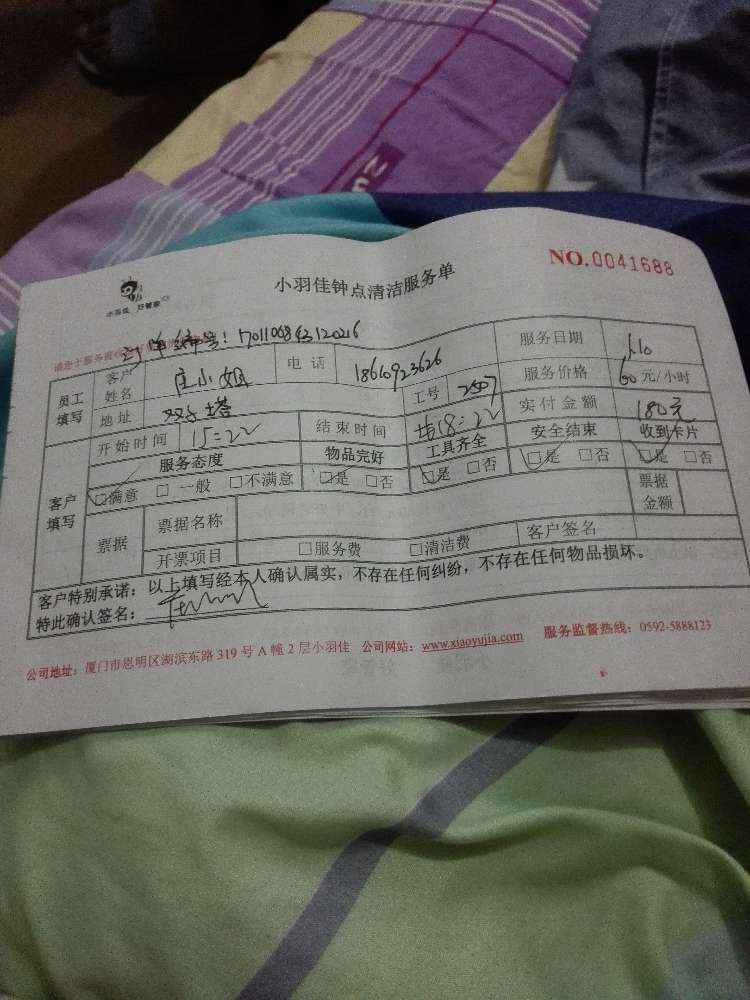 小羽佳 好管家
小羽佳钟点清洁服务单
NO.0041688
订单编号: 70110084312016
员工填写 客户姓名 庄小姐 电话 18610923626 服务日期 1.10
地址 双子塔 工号 2507 服务价格 60元/小时
开始时间 15:22 结束时间 18:22 实付金额 180元
服务态度 物品完好 工具齐全 安全结束 收到卡片
客户填写 □满意 □一般 □不满意 □是 □否 □是 □否 □是 □否 □是 □否
票据 票据名称 票据金额
开票项目 □服务费 □清洁费 客户签名
客户特别承诺:以上填写经本人确认属实,不存在任何纠纷,不存在任何物品损坏。
特此确认签名:
公司地址:厦门市思明区湖滨东路319号A幢2层小羽佳 公司网站:www.xiaoyujia.com 服务监督热线:0592-5888123